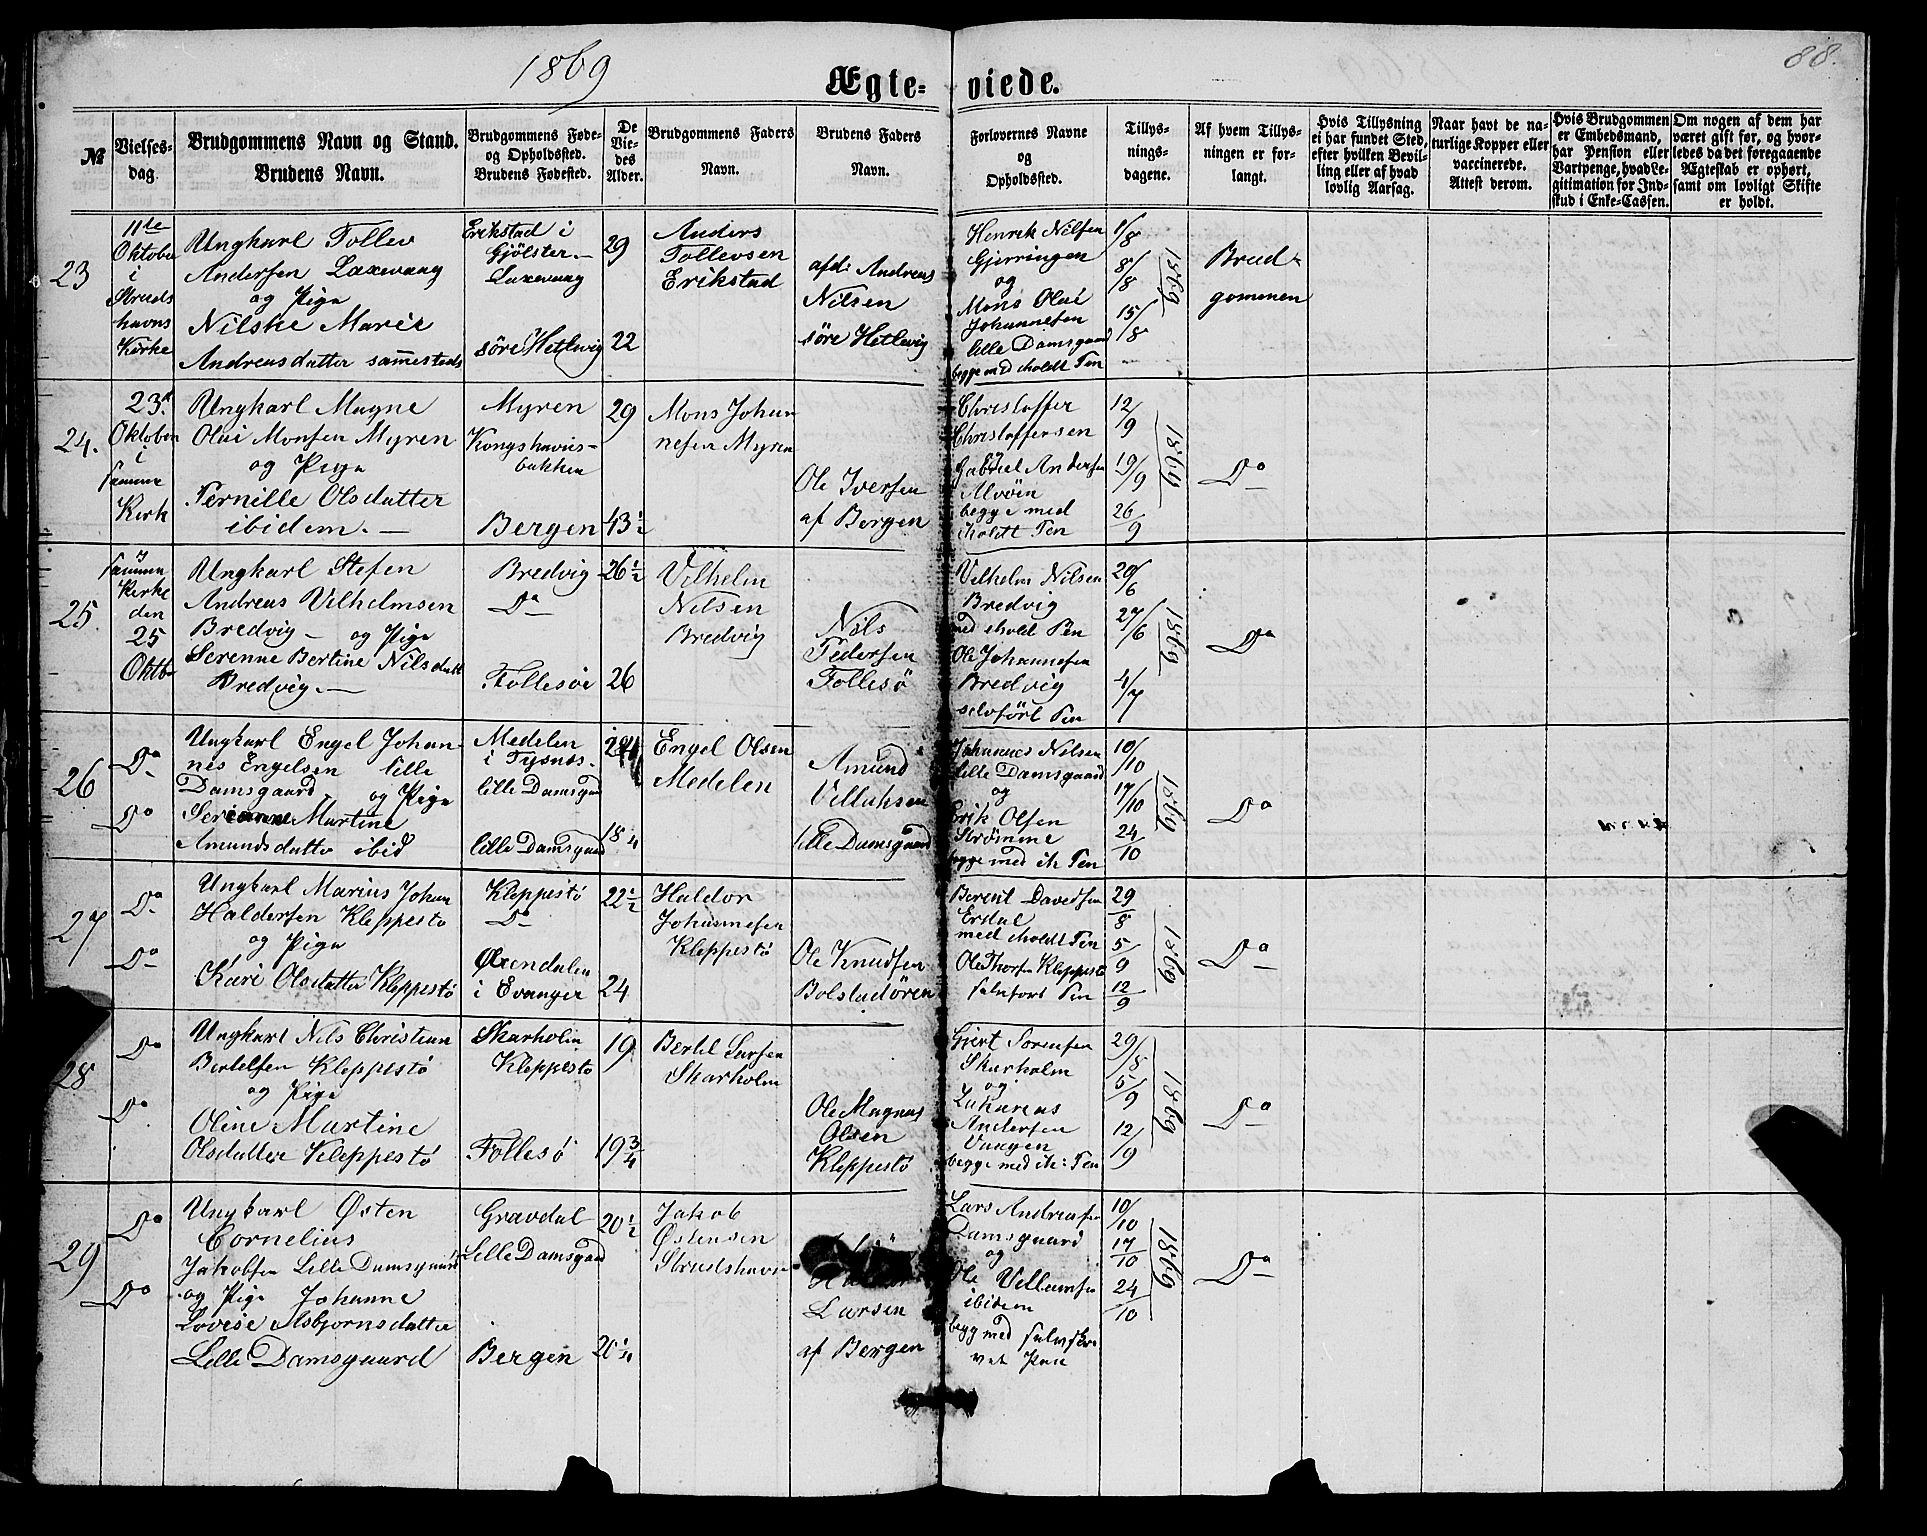 1869
88.
Ægte= viede.
№
Vielses-
dag.
Brudgommens Navn og Stand.
Brudens Navn.
Brudgommens Føde-
og Opholdssted.
Brudens Fødested.
De
Vie-
des
Alder.
Brudgommens Faders
Navn.
Brudens Faders
Navn.
Forlovernes Navne
og
Opholdssted.
Tillys-
nings-
dagene.
Af hvem Tillys-
ningen er for-
langt.
Hvis Tillysning
ei har fundet Sted,
efter hvilken Bevil-
ling eller af hvad
lovlig Aarsag.
Naar havt de na-
turlige Kopper eller
vaccinerede.
Attest derom.
Hvis Brudgommen
er Embedsmand,
har Pension eller
Vartpenge, hvad Le-
gitimation for Ind-
skud i Enke-Cassen.
Om nogen af dem har
været gift før, og hvor-
ledes da det foregaaende
Ægteskab er ophørt,
samt om lovligt Skifte
er holdt.
23
11te
Oktober
i
Struds
havns
Kirke
Ungkarl Tollev
Andersen Laxevaag
og Pige
Nilske Marie
Andreasdatter sammesteds
Erikstad i
Gjölster.—
Laxevaag
söre Hetlevig
29
22
Anders
Tollevsen
Erikstad
afd: Andreas
Nilsen
söre Hetlevig
Henrik Nilsen
Gjerringen
og
Mons Olai
Johannesen
lille Damsgaard
begge med iholdt Pen
1/8
8/8
15/8
1869
Brud-
gommen
24.
23d
Oktober
i
samme
Kirk
Ungkarl Magne
Olai Monsen Myren
og Pige
Pernille Olsdatter
ibidem.—
Myren
Kongshavns-
bakken
Bergen
29
43½
Mons Johan
nesen Myren
Ole Iversen
af Bergen
Christoffer
Christoffersen
Gabriel Andersen
Alvöin
begge med
iholdt Pen
12/9
19/9
26/9
1869
Do
25.
sammen
Kirke
den
25
Oktb
Ungkarl Stefen
Andreas Vilhelmsen
Bredvig— og Pige
Serenne Bertine Nilsdatt
Bredvig.—
Bredvig
Do
Follesöe
26½
26
Vilhelm
Nilsen
Bredvig
Nils
Pedersen
Follesö
Vilhelm Nilsen
Bredvig
med ihold Pen
Ole Johannesen
Bredvig
selvfört Pen
20/6
27/6
4/7
1869
Do
26
Do
Do
Ungkarl Engel Johan-
nes Engelsen lille
Damsgaard og Pige
Serianne Martine
Amundsdatter ibid
Medelen
i Tysnes.
lille Damsgaa
lille Damsgaard
18¼
Engel Olsen
Medelen
Amund
Villuhsen
lille Damsgaard
Johannes Nilsen
lille Damsgaard
og
Erik Olsen
Strömme
begge med ih Pen
10/10
17/10
24/10
1869
Do
27
Do
Do
Ungkarl Marius Johan
Haldersen Kleppestö
og Pige
Kari Olsdatter Kleppestö
Kleppestö
Do
Öxendalen
i Evanger
22½
24
Haldor
Johannesen
Kleppestö
Ole Knudsen
Bolstadören
Berent Davedsen
Erdal
med iholdt Pen
Ole Thorsen Kleppestö
selvfört Pen
29/8
5/9
12/9
1869
Do
28
Do
Do
Ungkarl Nils Christian
Bertelsen Kleppestö
og Pige
Oline Martine
Olsdatter Kleppestö
Skarholm
Kleppestö
Follesö
19
19¾
Bertel Larsen
Skarholm
Ole Magnus
Olsen
Kleppestö
Giert Sörensen
Skarholm
og
Zakarias
Andersen
Vaagen
begge med ih: Pen
29/8
5/9
12/9
1869
Do
29
Do
Do
Ungkarl Østen
Cornelius
Jakobsen Lille Damsgaard
og Pige Johanne
Lovise Asbjornsdatter
Lille Damsgaard
Gravdal
Lille Damsgaard
Bergen
20½
20¼
Jakob
Østensen
Strudshavn
Larsen
af Bergen
Lars Andreasen
Damsgaard
og
Ole Villumsen
ibidem
begg med selvskre
vet Pen
10/10
17/10
24/10
1869
Do